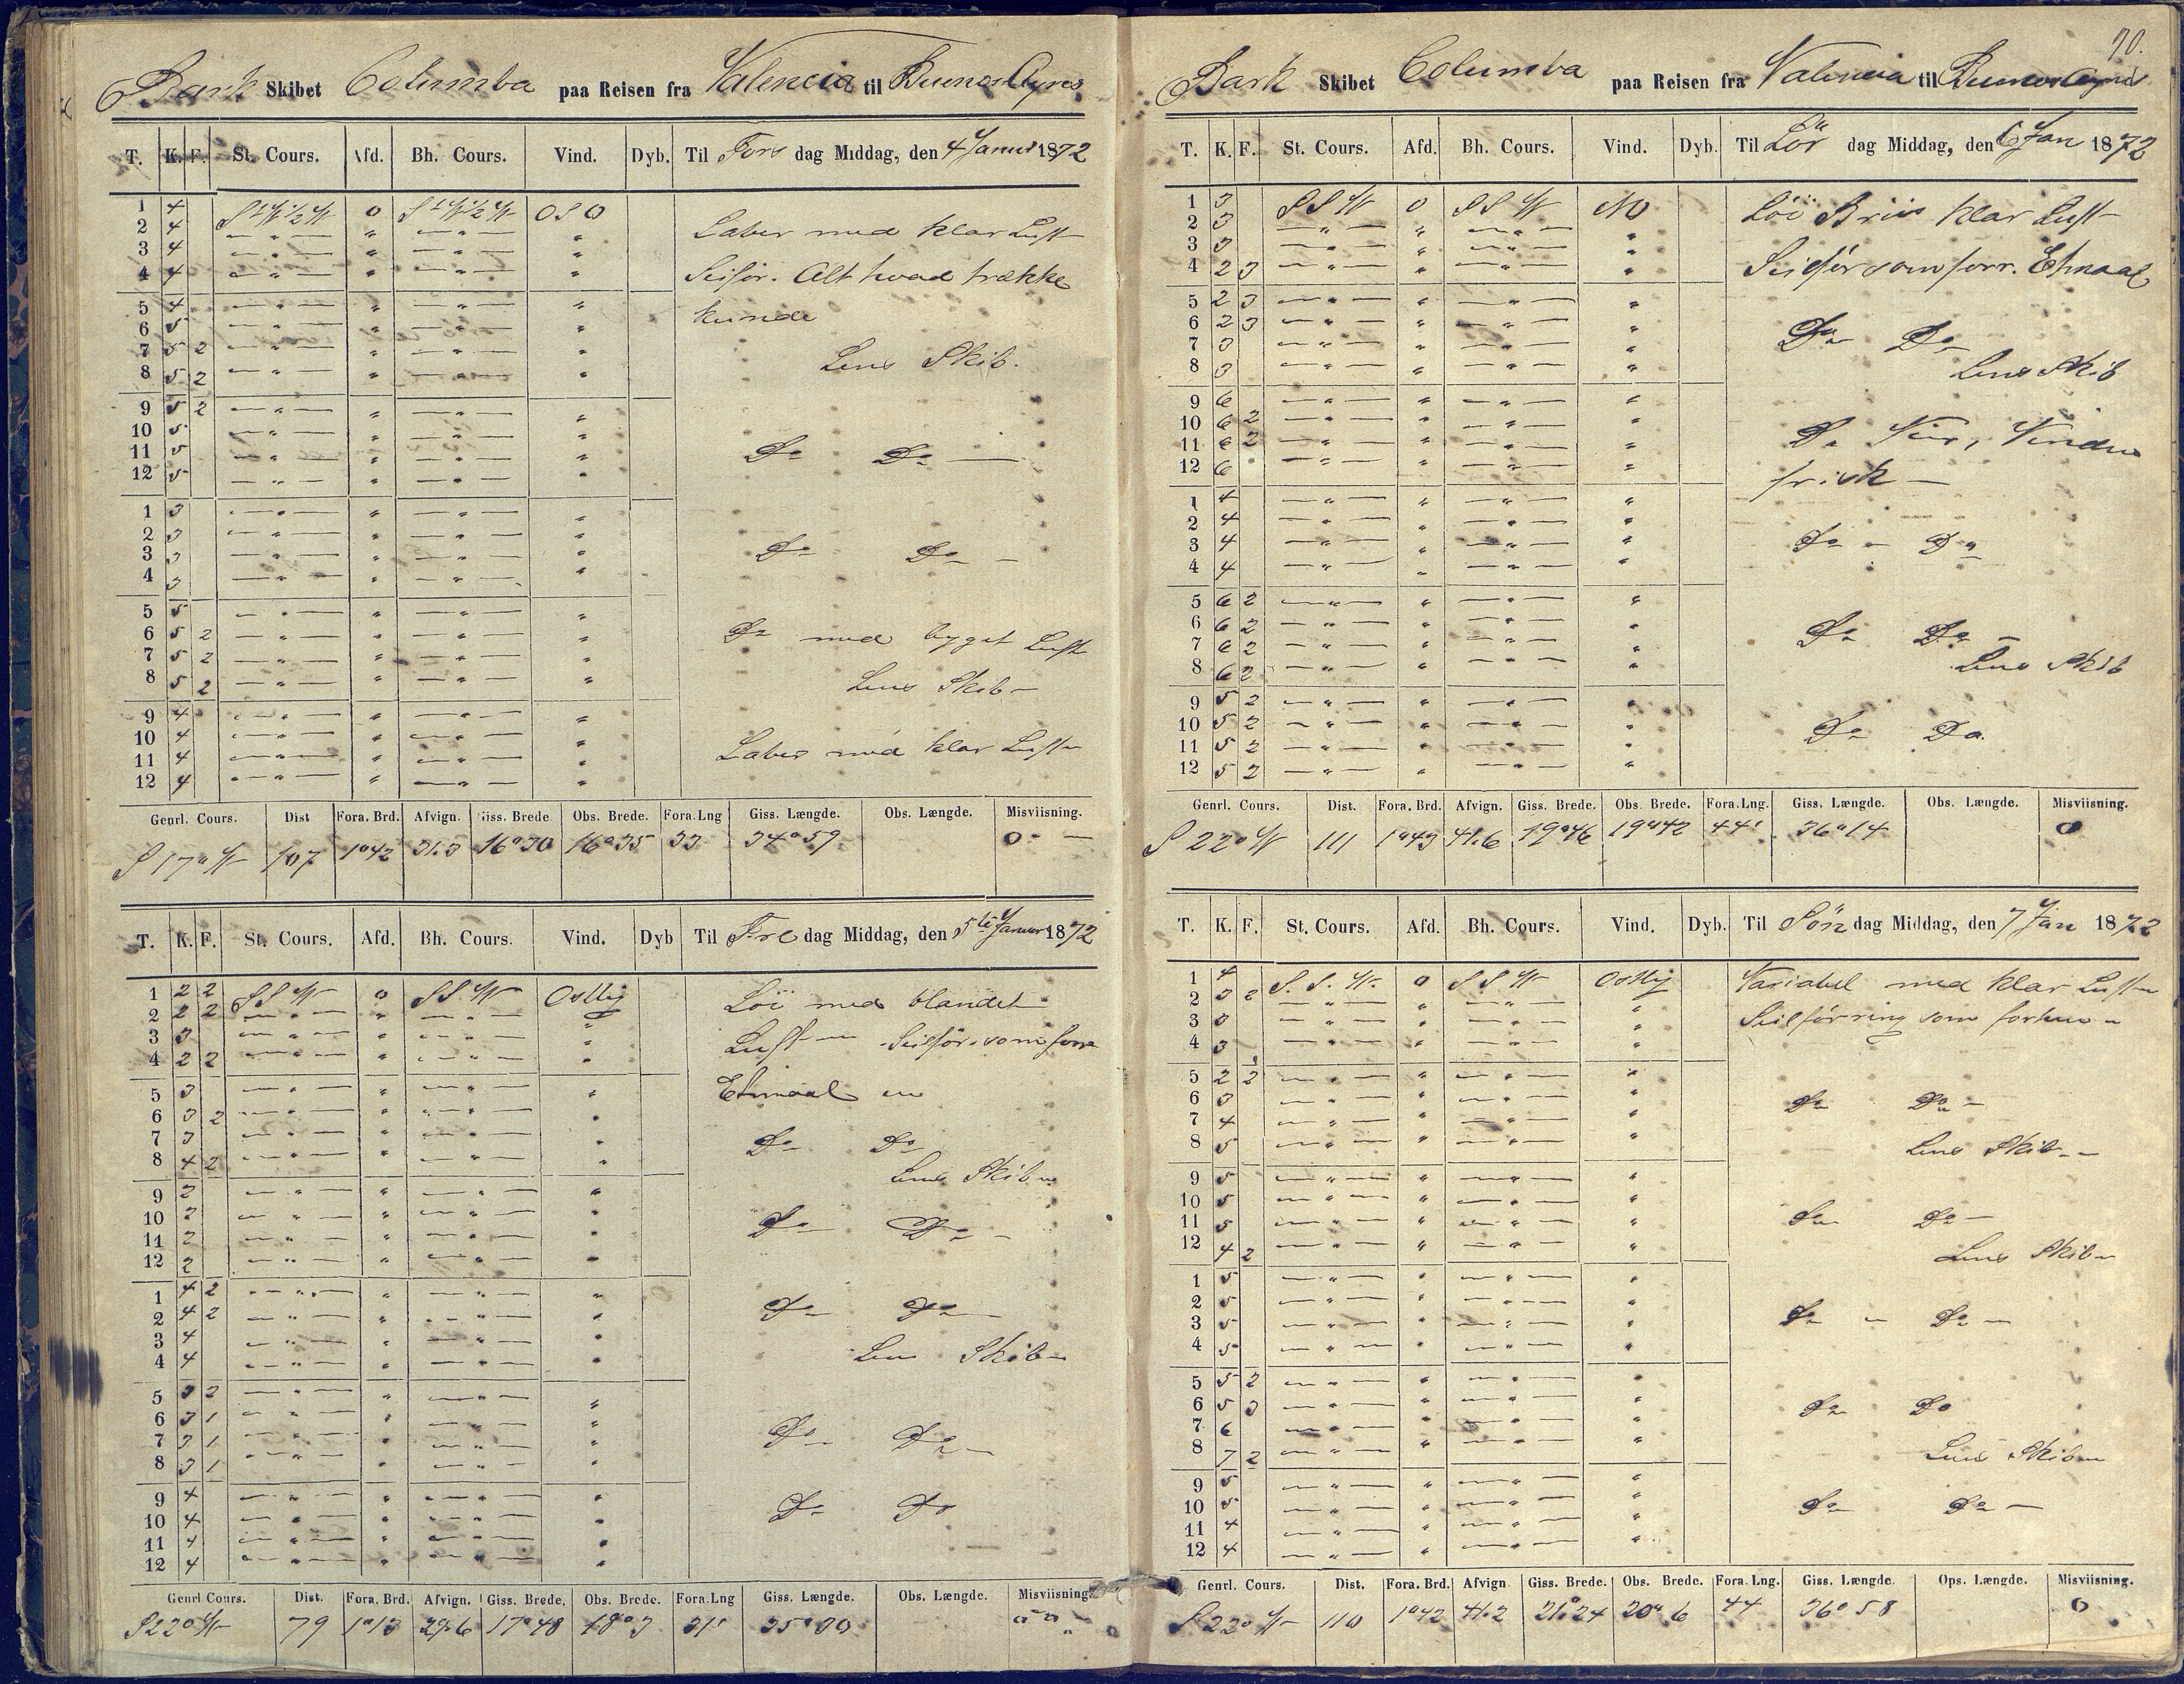 Bark Skibet Columba paa Reisen fra Valencia til Buenos Ayres
T. K. F. St. Cours. Afd. Bh. Cours. Vind. Dyb. Til Fors dag Middag, den 4 Januar 1872
1 4 StW½W 0 StW½W OSO
2 4 — " — " — " — "
3 4 — " — " — " — "
4 4 — " — " — " — "
5 4 — " — " — " — "
6 5 — " — " — " — "
7 5 2 — " — " — " — "
8 5 2 — " — " — " — "
9 5 2 — " — " — " — "
10 5 — " — " — " — "
11 5 — " — " — " — "
12 5 — " — " — " — "
1 3 — " — " — " — "
2 3 — " — " — " — "
3 3 — " — " — " — "
4 3 — " — " — " — "
5 5 — " — " — " — "
6 5 2 — " — " — " — "
7 5 2 — " — " — " — "
8 5 2 — " — " — " — "
9 4 — " — " — " — "
10 4 — " — " — " — "
11 4 — " — " — " — "
12 4 — " — " — " — "
Laber med klar Luft
Seilför. Alt hvad trække
kunde
Lens Skib.
Do Do —
Do Do —
Do med byget Luft
Lens Skib —
Laber med klar Luft
Genrl. Cours. Dist. Fora. Brd. Afvign. Giss. Brede Obs. Brede. Fora. Lng Giss. Længde. Obs. Længde. Misviisning.
S 17° W 107 1°42 31.3 16°30 16°35 33 34°59 0 —
T. K. F. St. Cours. Afd. Bh. Cours. Vind. Dyb Til Fre dag Middag, den 5te Januar 1872
1 2 2 SSW 0 SSW Ostlig
2 2 2 — " — " — " — "
3 3 — " — " — " — "
4 2 2 — " — " — " — "
5 3 — " — " — " — "
6 3 2 — " — " — " — "
7 3 — " — " — " — "
8 4 2 — " — " — " — "
9 2 — " — " — " — "
10 2 — " — " — " — "
11 2 — " — " — " — "
12 2 — " — " — " — "
1 4 2 — " — " — " — "
2 4 2 — " — " — " — "
3 4 — " — " — " — "
4 4 — " — " — " — "
5 3 2 — " — " — " — "
6 3 1 — " — " — " — "
7 3 1 — " — " — " — "
8 3 1 — " — " — " — "
9 4 — " — " — " — "
10 4 — " — " — " — "
11 4 — " — " — " — "
12 4 — " — " — " — "
Löi med blandet
Luft — Seilför. som forr
Etmaal
Do Do
Lens Skib
Do Do —
Do Do —
Lens Skib —
Do Do —
Do Do
Genrl Cours. Dist. Fora. Brd. Afvign. Giss. Brede. Obs. Brede. Fora. Lng Giss. Længde. Obs. Længde. Misviisning.
S 22° W 79 1°13 29.6 17°48 18°3 31' 35°30
70.
Bark Skibet Columba paa Reisen fra Valencia til Buenos Ayres
T. K. F. St. Cours. Afd. Bh. Cours. Vind. Dyb. Til Lör dag Middag, den 6 Jan 1872
1 3 SSW 0 SSW NO
2 3 — " — " — " — "
3 3 — " — " — " — "
4 2 3 — " — " — " — "
5 2 3 — " — " — " — "
6 2 3 — " — " — " — "
7 3 — " — " — " — "
8 3 — " — " — " — "
9 6 — " — " — " — "
10 6 2 — " — " — " — "
11 6 2 — " — " — " — "
12 6 — " — " — " — "
1 4 — " — " — " — "
2 4 — " — " — " — "
3 4 — " — " — " — "
4 4 — " — " — " — "
5 6 2 — " — " — " — "
6 6 2 — " — " — " — "
7 6 2 — " — " — " — "
8 6 2 — " — " — " — "
9 5 2 — " — " — " — "
10 5 2 — " — " — " — "
11 5 2 — " — " — " — "
12 5 2 — " — " — " — "
Löi Briis klar Luft
Seilför som forr. Etmaal
Do Do
Lens Skib
Do Veir, Vinden
frisk —
Do — Do
Do Do —
Lens Skib
Do Do.
Genrl. Cours. Dist. Fora. Brd. Afvign. Giss. Brede. Obs. Brede. Fora. Lng. Giss. Længde. Obs. Længde. Misviisning.
S 22° W 111 1°43 41.6 19°46 19°42 44' 36°14 0
T. K. F. St. Cours. Afd. Bh. Cours. Vind. Dyb. Til Sön dag Middag, den 7 Jan 1872
1 4 S. S. W. 0 SSW Ostlig
2 3 2 — " — " — " — "
3 3 — " — " — " — "
4 3 — " — " — " — "
5 2 2 — " — " — " — "
6 3 — " — " — " — "
7 4 — " — " — " — "
8 5 — " — " — " — "
9 5 — " — " — " — "
10 5 — " — " — " — "
11 5 — " — " — " — "
12 4 2 — " — " — " — "
1 5 — " — " — " — "
2 5 — " — " — " — "
3 5 — " — " — " — "
4 5 — " — " — " — "
5 5 2 — " — " — " — "
6 5 3 — " — " — " — "
7 6 — " — " — " — "
8 7 2 — " — " — " — "
9 5 — " — " — " — "
10 5 — " — " — " — "
11 4 — " — " — " — "
12 4 — " — " — " — "
Variabel med klar Luft
Seilförring som forhen
Do Do —
Lens Skib —
Do Do —
Lens Skib
Do — Do —
Do Do
Lens Skib
Do Do —
Genrl. Cours. Dist. Fora. Brd. Afvign Giss. Brede. Obs. Brede. Fora. Lng. Giss. Længde. Ops. Længde. Misviisning.
S 22° W 110 1°42 41.2 21°24 20°6 44 36°58 0